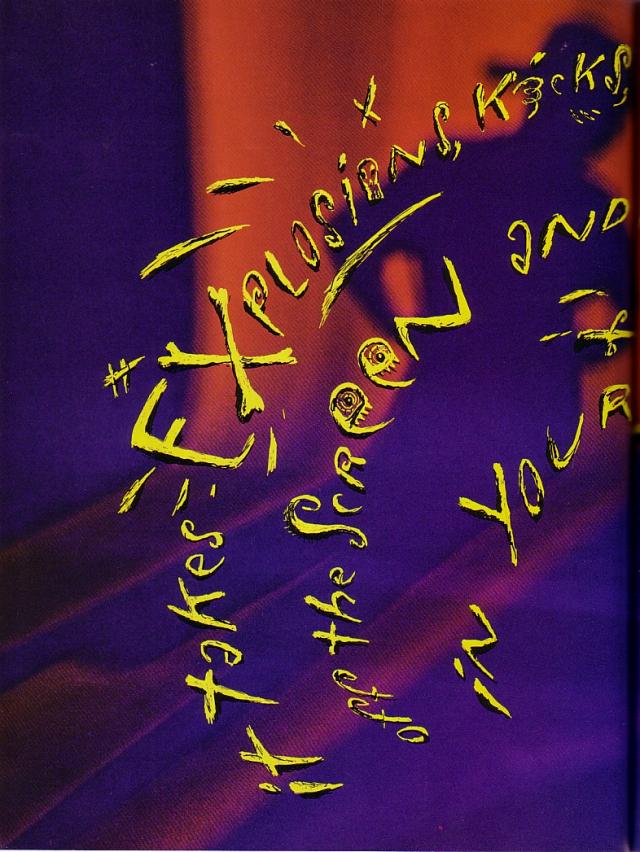 it takes EXPLOSiONS, KicKS,
off the ScreeN AND
iN YOUR